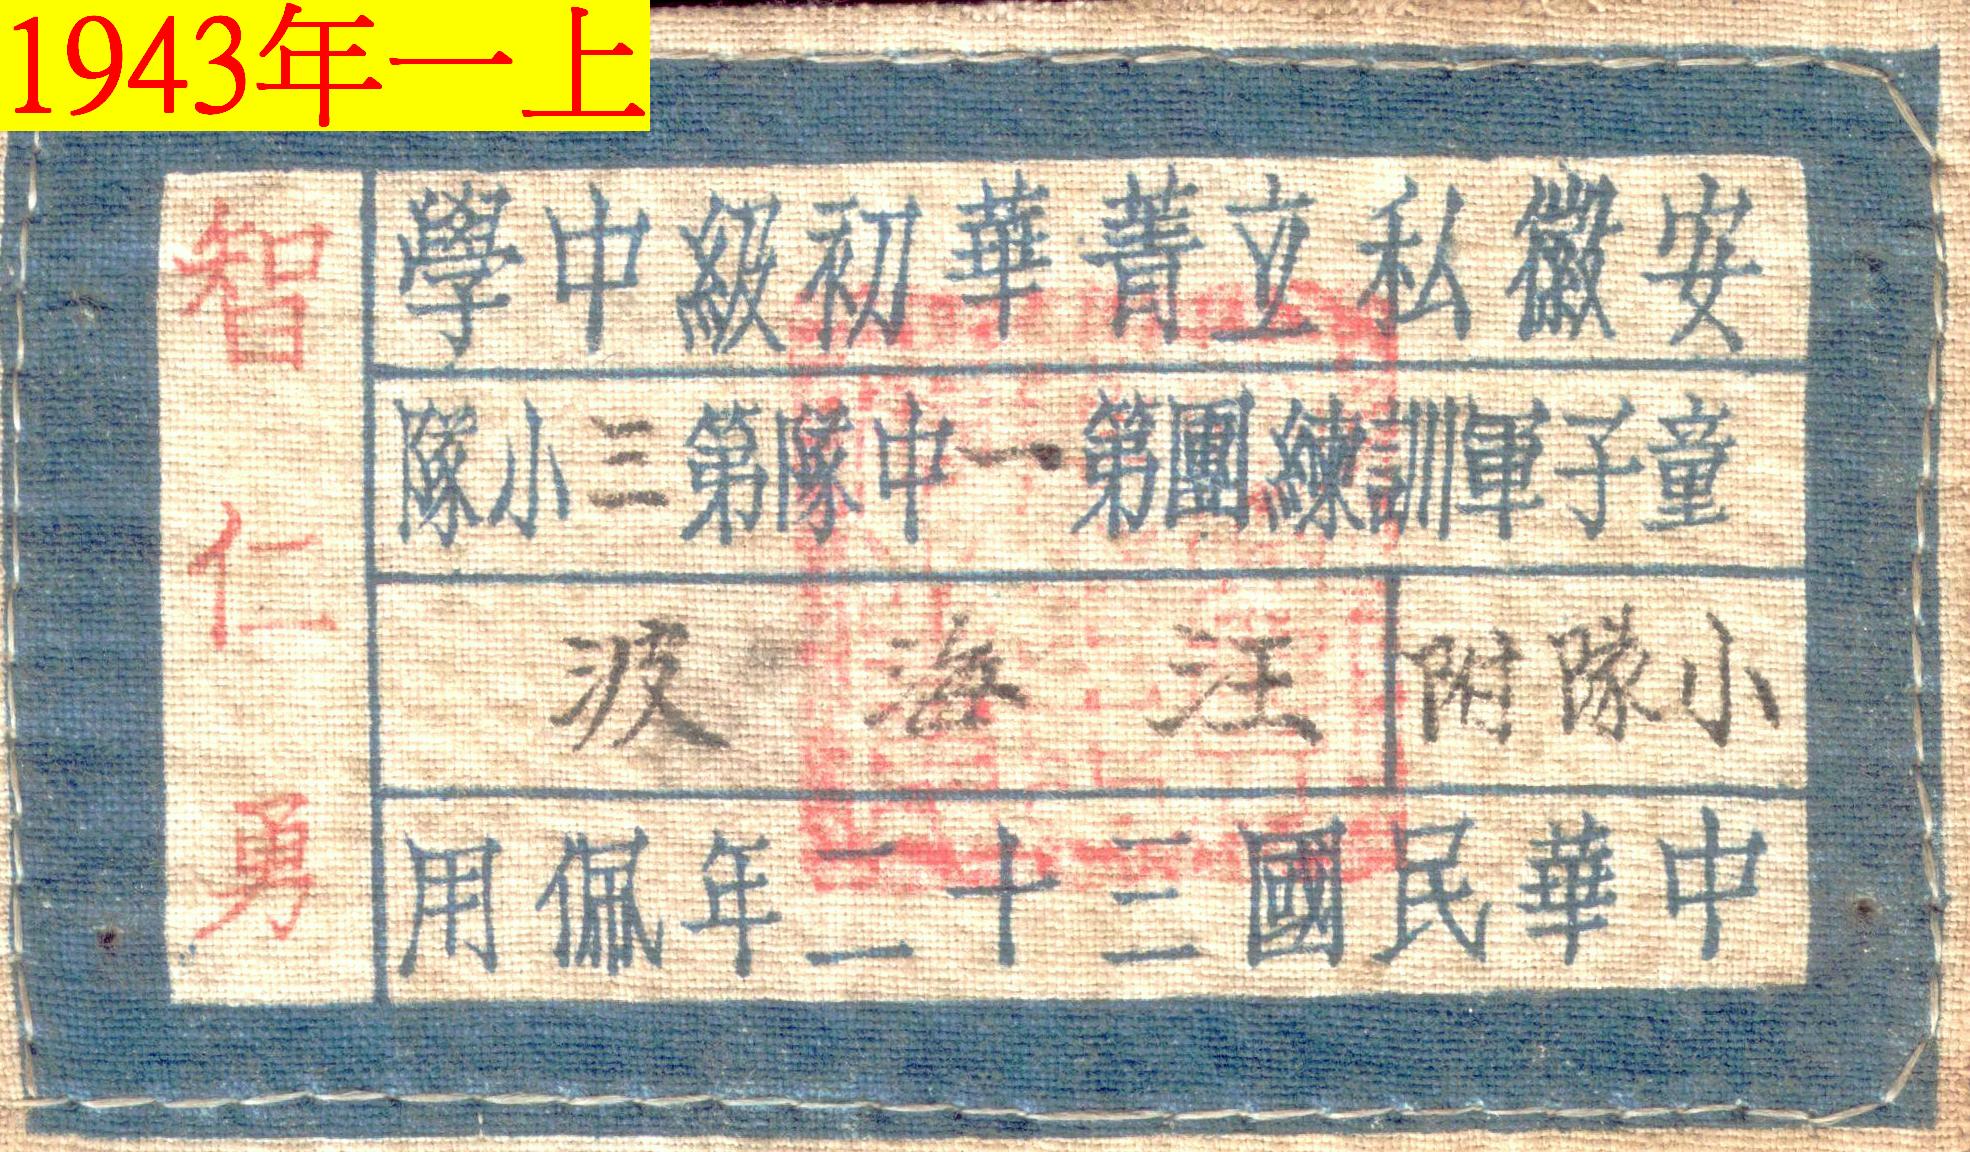 1943年一上
安徽私立菁華初級中學
童子軍訓練團第一中隊第三小隊
小隊附 汪海波
中華民國三十二年佩用
智仁勇